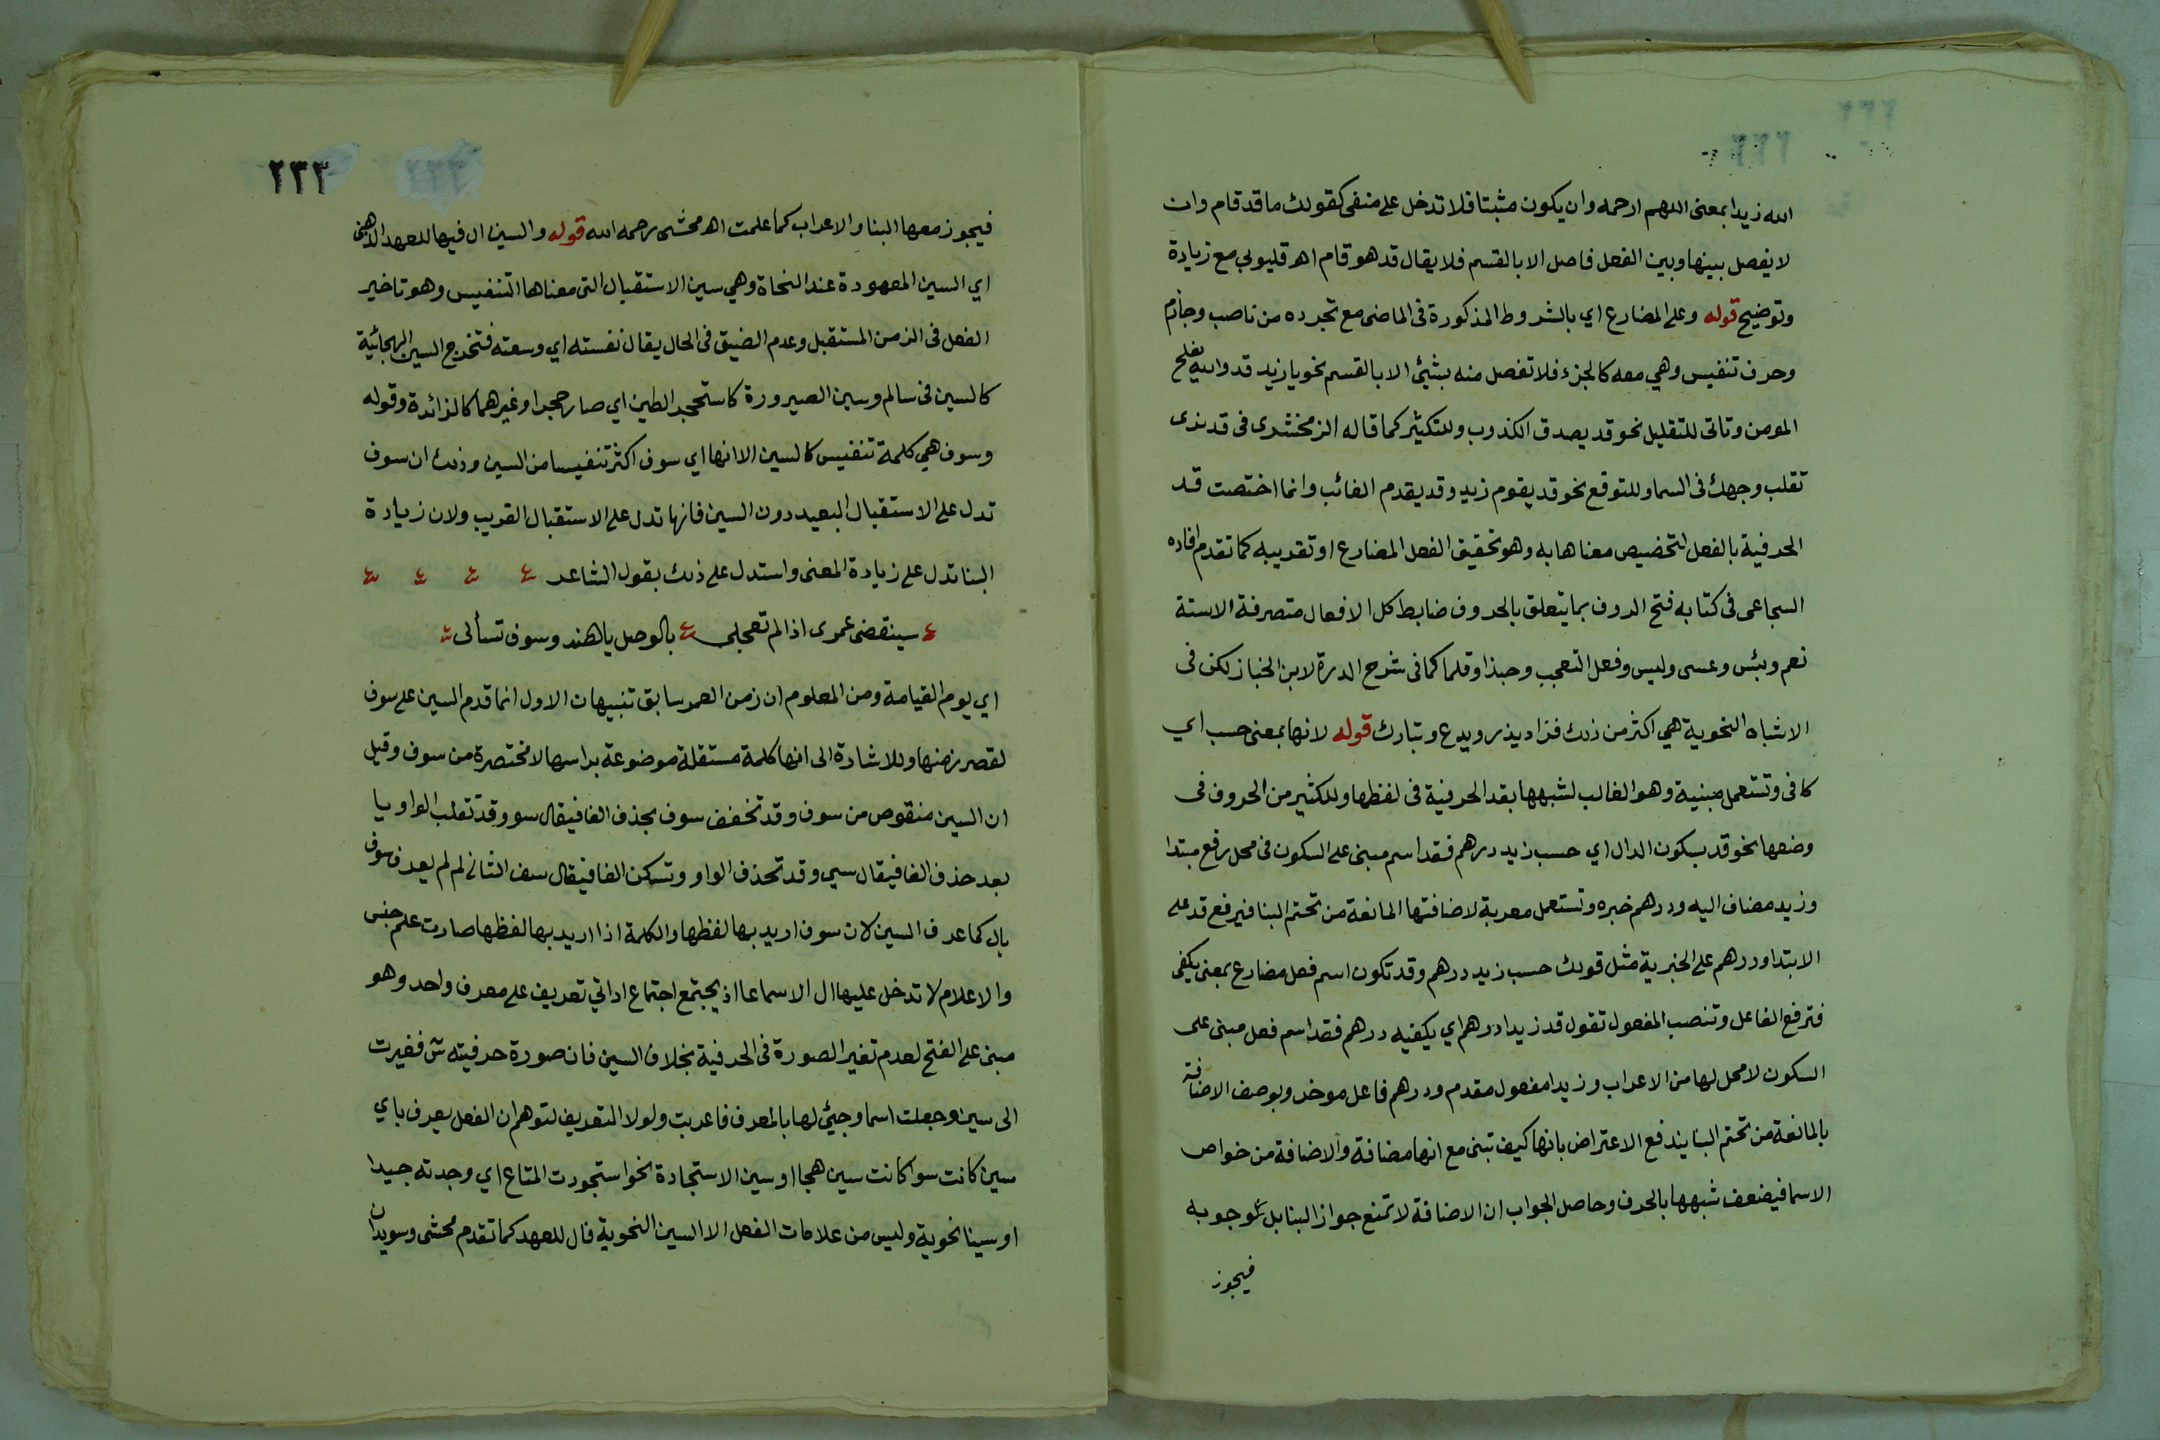 الله زيدا بمعنى اللهم ارحمه وان يكون مثبتا فلا تدخل على منفى كقولك ما قد قام وان
لا يفصل بينها وبين الفعل فاصل الا بالقسم فلا يقال قد هو قام اهـ قليوبي مع زيادة
وتوضيح قوله وعلى المضارع اي بالشروط المذكورة فى الماضى مع تجرده من ناصب وجازم
وحرف تنفيس وهي معه كالجزء فلا تفصل منه بشيئ الا بالقسم نحو يا زيد قد والله يفلح
المومن وتاتى للتقليل نحو قد يصدق الكذوب وللتكثير كما قاله الزمخشرى فى قد نرى
تقلب وجهك فى السما وللتوقع نحو قد يقوم زيد وقد يقدم الغائب وانما اختصت قد
الحرفية بالفعل لتخصيص معناها به وهو تحقيق الفعل المضارع او تقريبه كما تقدم افاده
السجاعى فى كتابه فتح الروف بما يتعلق بالحروف ضابط كل الافعال متصرفة الاستة
نعم وبئس وعسى وليس وفعل التعجب وحبذا وقلما كما فى شرح الدرة لابن الخباز لكن فى
الاشباه النحوية هي اكثر من ذلك فزاد يذر ويدع وتبارك قوله لانها بمعنى حسب اي
كافى وتستعمل مبنية وهو الغالب لشبهها بقد الحرفية فى لفظها وللكثير من الحروف فى
وضعها نحو قد بسكون الدال اي حسب زيد درهم فقد اسم مبنى على السكون فى محل رفع مبتدا
وزيد مضاف اليه ودرهم خبره وتستعمل معربة لاضافتها المانعة من تحتم البنا فيرفع قد على
الابتدا ودرهم على الخبرية مثل قولك حسب زيد درهم وقد تكون اسم فعل مضارع بمعنى يكفى
فترفع الفاعل وتنصب المفعول تقول قد زيدا درهم اي يكفيه درهم فقد اسم فعل مبنى على
السكون لا محل لها من الاعراب وزيدا مفعول مقدم ودرهم فاعل موخر وبوصف الاضافة
بالمانعة من تحتم البنا يندفع الاعتراض بانها كيف تبنى مع انها مضافة والاضافة من خواص
الاسما فيضعف شبهها بالحرف وحاصل الجواب ان الاضافة لا تمنع جواز البنا بل وجوبه
فيجوز
٢٣٣
فيجوز معها البنا والاعراب كما علمت اهـ محشى رحمه الله قوله والسين ال فيها للعهد الذهنى
اي السين المعهودة عند النحاة وهي سين الاستقبال التى معناها التنفيس وهو تاخير
الفعل فى الزمن المستقبل وعدم الضيق فى الحال يقال نفسته اي وسعته فتخرج السين الهجائية
كالسين فى سالم وسين الصيرورة كاستحجر الطين اي صار حجرا وغيرهما كالزائدة وقوله
وسوف هي كلمة تنفيس كالسين الا انها اي سوف اكثر تنفيسا من السين وذلك ان سوف
تدل على الاستقبال البعيد دون السين فانها تدل على الاستقبال القريب ولان زيادة
البنا تدل على زيادة المعنى واستدل على ذلك بقول الشاعر
سينقضى عمرى اذا لم تعجلى بالوصل يا هند وسوف تسألى
اي يوم القيامة ومن المعلوم ان زمن العمر سابق تنبيهات الاول انما قدم السين على سوف
لقصر زمنها وللاشارة الى انها كلمة مستقلة موضوعة براسها لا مختصرة من سوف وقيل
ان السين منقوص من سوف وقد تخفف سوف بحذف الفا فيقال سو وقد تقلب الواو يا
بعد حذف الفا فيقال سي وقد تحذف الواو وتسكن الفا فيقال سف الثانى لم لم يعرف سوف
بال كما عرف السين لان سوف اريد بها لفظها والكلمة اذا اريد بها لفظها صارت علم جنس
والاعلام لا تدخل عليها ال الاسماعا اذ يجتمع اجتماع اداتي تعريف على معرف واحد وهو
مبنى على الفتح لعدم تغير الصورة فى الحرفية بخلاف السين فان صورة حرفيته س فغيرت
الى سين وجعلت اسما وجيئ لها بالمعرف فاعربت ولولا التعريف لتوهم ان الفعل يعرف باي
سين كانت سوا كانت سين هجا او سين الاستجادة نحو استجودت المتاع اي وجدته جيدا
او سينا نحوية وليس من علامات الفعل الا السين النحوية فال للعهد كما تقدم محشى وسويدان